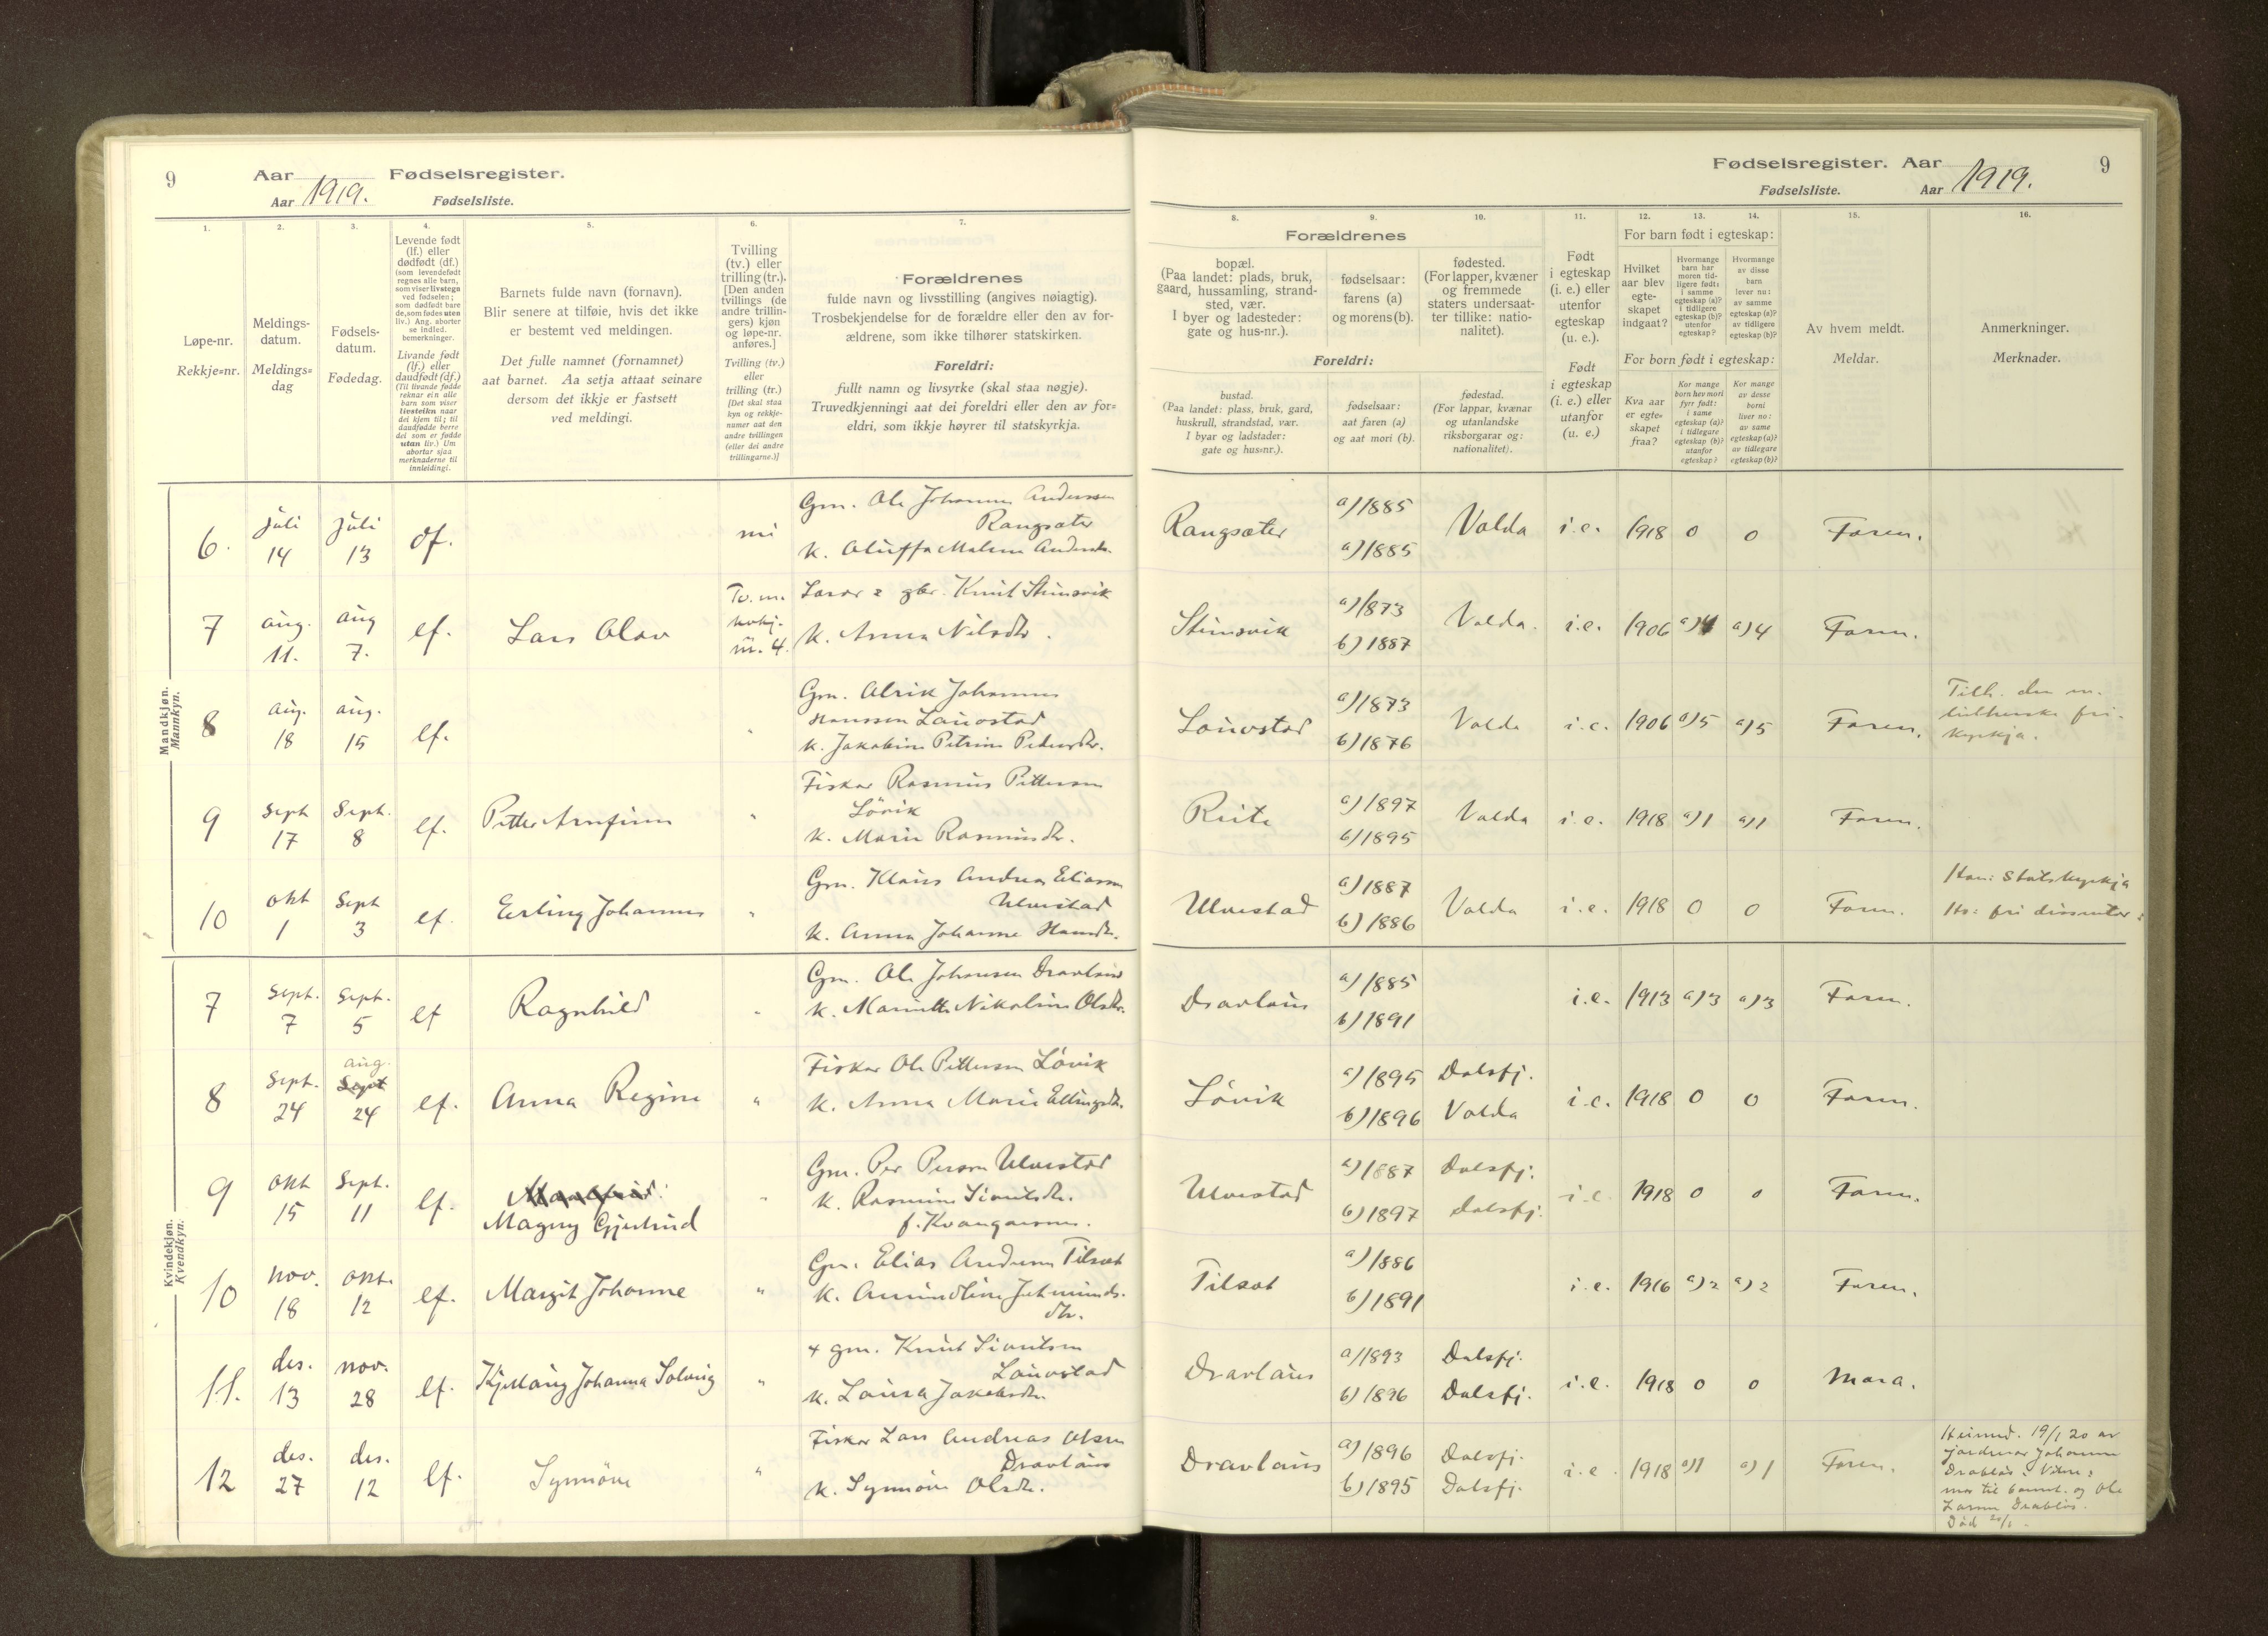 9
Aar 1919. Fødselsregister.
Aar Fødselsliste.
1.
2.
3.
4.
5.
6.
7.
Løpe-nr.
Rekkje=nr.
Meldings-
datum.
Meldings=
dag
Fødsels-
datum.
Fødedag.
Levende født
(lf.) eller
dødfødt (df.)
(som levendefødt
regnes alle barn,
som viser livstegn
ved fødselen;
som dødfødt bare
de, som fødes uten
liv.) Ang. aborter
se indled.
bemerkninger.
Livande født
(lf.) eller
daudfødt (df.)
(Til livande fødde
reknar ein alle
barn som viser
livsteikn naar
dei kjem til; til
daudfødde berre
dei som er fødde
utan liv.) Um
abortar sjaa
merknaderne til
innleidingi.
Barnets fulde navn (fornavn).
Blir senere at tilføie, hvis det ikke
er bestemt ved meldingen.
Det fulle namnet (fornamnet)
aat barnet. Aa setja attaat seinare
dersom det ikkje er fastsett
ved meldingi.
Tvilling
(tv.) eller
trilling (tr.).
[Den anden
tvillings (de
andre trillin-
gers) kjøn
og løpe-nr.
anføres.]
Tvilling (tv.)
eller
trilling (tr.)
[Det skal staa
kyn og rekkje-
numer aat den
andre tvillingen
(eller dei andre
trillingarne.)]
Forældrenes
fulde navn og livsstilling (angives nøiagtig).
Trosbekjendelse for de forældre eller den av for-
ældrene, som ikke tilhører statskirken.
Foreldri:
fullt namn og livsyrke (skal staa nøgje).
Truvedkjenningi aat dei foreldri eller den av for=
eldri, som ikkje høyrer til statskyrkja.
Fødselsregister. Aar 1919. 9
Fødselsliste. Aar
8.
9.
10.
11.
12.
13.
14.
15.
16.
Forældrenes
bopæl.
(Paa landet: plads, bruk,
gaard, hussamling, strand-
sted, vær.
I byer og ladesteder:
gate og hus-nr.).
fødselsaar:
farens (a)
og morens (b).
fødested.
(For lapper, kvæner
og fremmede
staters undersaat-
ter tillike: natio-
nalitet).
Foreldri:
bustad.
(Paa landet: plass, bruk, gard,
huskrull, strandstad, vær.
I byar og ladstader:
gate og hus=nr.).
fødselsaar:
aat faren (a)
og aat mori (b).
fødestad.
(For lappar, kvænar
og utanlandske
riksborgarar og:
nationalitet).
Født
i egteskap
(i. e.) eller
utenfor
egteskap
(u. e.).
Født
i egteskap
(i. e.) eller
utanfor
egteskap
(u. e.)
For barn født i egteskap:
Hvilket
aar blev
egte-
skapet
indgaat?
Hvormange
barn har
moren tid-
ligere født:
i samme
egteskap (a)?
i tidligere
egteskap (b)?
utenfor
egteskap?
Hvormange
av disse
barn
lever nu:
av samme
egteskap (a)?
av tidligere
egteskap (b)?
For born født i egteskap:
Kva aar
er egte=
skapet
fraa?
Kor mange
born hev mori
fyrr født:
i same
egteskap (a)?
i tidlegare
egteskap (b)?
utanfor
egteskap?
Kor mange
av desse
borni
liver no:
av same
egteskap (a)?
av tidlegare
egteskap (b)?
Av hvem meldt.
Meldar.
Anmerkninger.
Merknader.
Mandkjøn.
Mannkyn.
6. juli 14 juli 13 df. Gm. Ole Johannes Anderssen
Rangsæter
Rangsæter a) 1885 a) 1885 Volda i.e. 1918 0 0 Faren.
7 aug. 11. aug 7. lf. Lars Olav Tv. m. nr. 4. Knut Steinsvik
K. Anna Nilsdtr.
Steinsvik a) 1873 b) 1887 Volda. i.e. 1906 a) 4 a) 4 Faren.
8 aug. 18 aug. 15 lf. Gm. Alrik Johannes
Hanssen Lauvstad
K. Jakobine Petrine Pedersdtr.
Lauvstad a) 1873 b) 1876 Volda i.e. 1906 a) 5 a) 5 Faren. Tilh. den ev.
lutherske fri-
kyrkja.
9 sept 17 Sept. 8 lf. Petter Arnfinn " Fiskar Rasmus Pettersen
Løvik
K. Marie Rasmusdtr.
Reite a) 1897 b) 1895 Volda i.e. 1918 a) 1 a) 1 Faren.
10 okt 1 Sept 3 lf. Erling Johannes " Gm. Klaus Andreas Eliassen
Ulvestad
K. Anna Johanne Hansdtr.
Ulvestad a) 1887 b) 1886 Volda i.e. 1918 0 0 Faren. Han: Statskyrkja
Ho: fri dissenter:
Kvindekjøn.
Kvendkyn.
7 Sept. 7 Sept. 5 lf Ragnhild " Gm. Ole Johansen Dravlaus
K. Marietta Nikoline Olsdtr.
Dravlaus a) 1885 b) 1891 i.e. 1913 a) 3 a) 3 Faren.
8 Sept. 24 aug. Sept 24 lf. Anna Regine " Fiskar Ole Pettersen Løvik
K. Anna Marie Ellingsdtr.
Løvik a) 1895 b) 1896 Dalsfj. Volda i.e. 1918 0 0 Faren.
9 okt 15 Sept. 11 lf. Magny Gjertrud " Gm. Per Persen Ulvestad
K. Rasmine Sivertsdtr.
f. Kvangarsnes.
Ulvestad a) 1887 b) 1897 Dalsfj. Dalsfj. i.e. 1918 0 0 Faren.
10 nov. 18 okt. 12 lf. Margit Johanne " Gm. Elias Andersen Tilset
Tilset a) 1886 b) 1891 i.e. 1916 a) 2 a) 2 Faren.
11. des. 13 nov. 28 lf. Kjellaug Johanna Solveig " + gm. Knut Sivertsen
Lauvstad
K. Laura Jakobsdtr.
Dravlaus a) 1893 b) 1896 Dalsfj. Dalsfj. i.e. 1918 0 0 Mora.
12 des. 27 des. 12 lf. Synnøve " Fiskar Lars Andreas Olsen
Dravlaus
K. Synnøve Olsdtr.
Dravlaus a) 1896 b) 1895 Dalsfj. Dalsfj. i.e. 1918 a) 1 a) 1 Faren. Heimed. 19/1 20 av
jordmor Johanne
Drabløs: Vitne:
mor til barnet. og Ole
Larsen Drabløs.
Død 20/1.